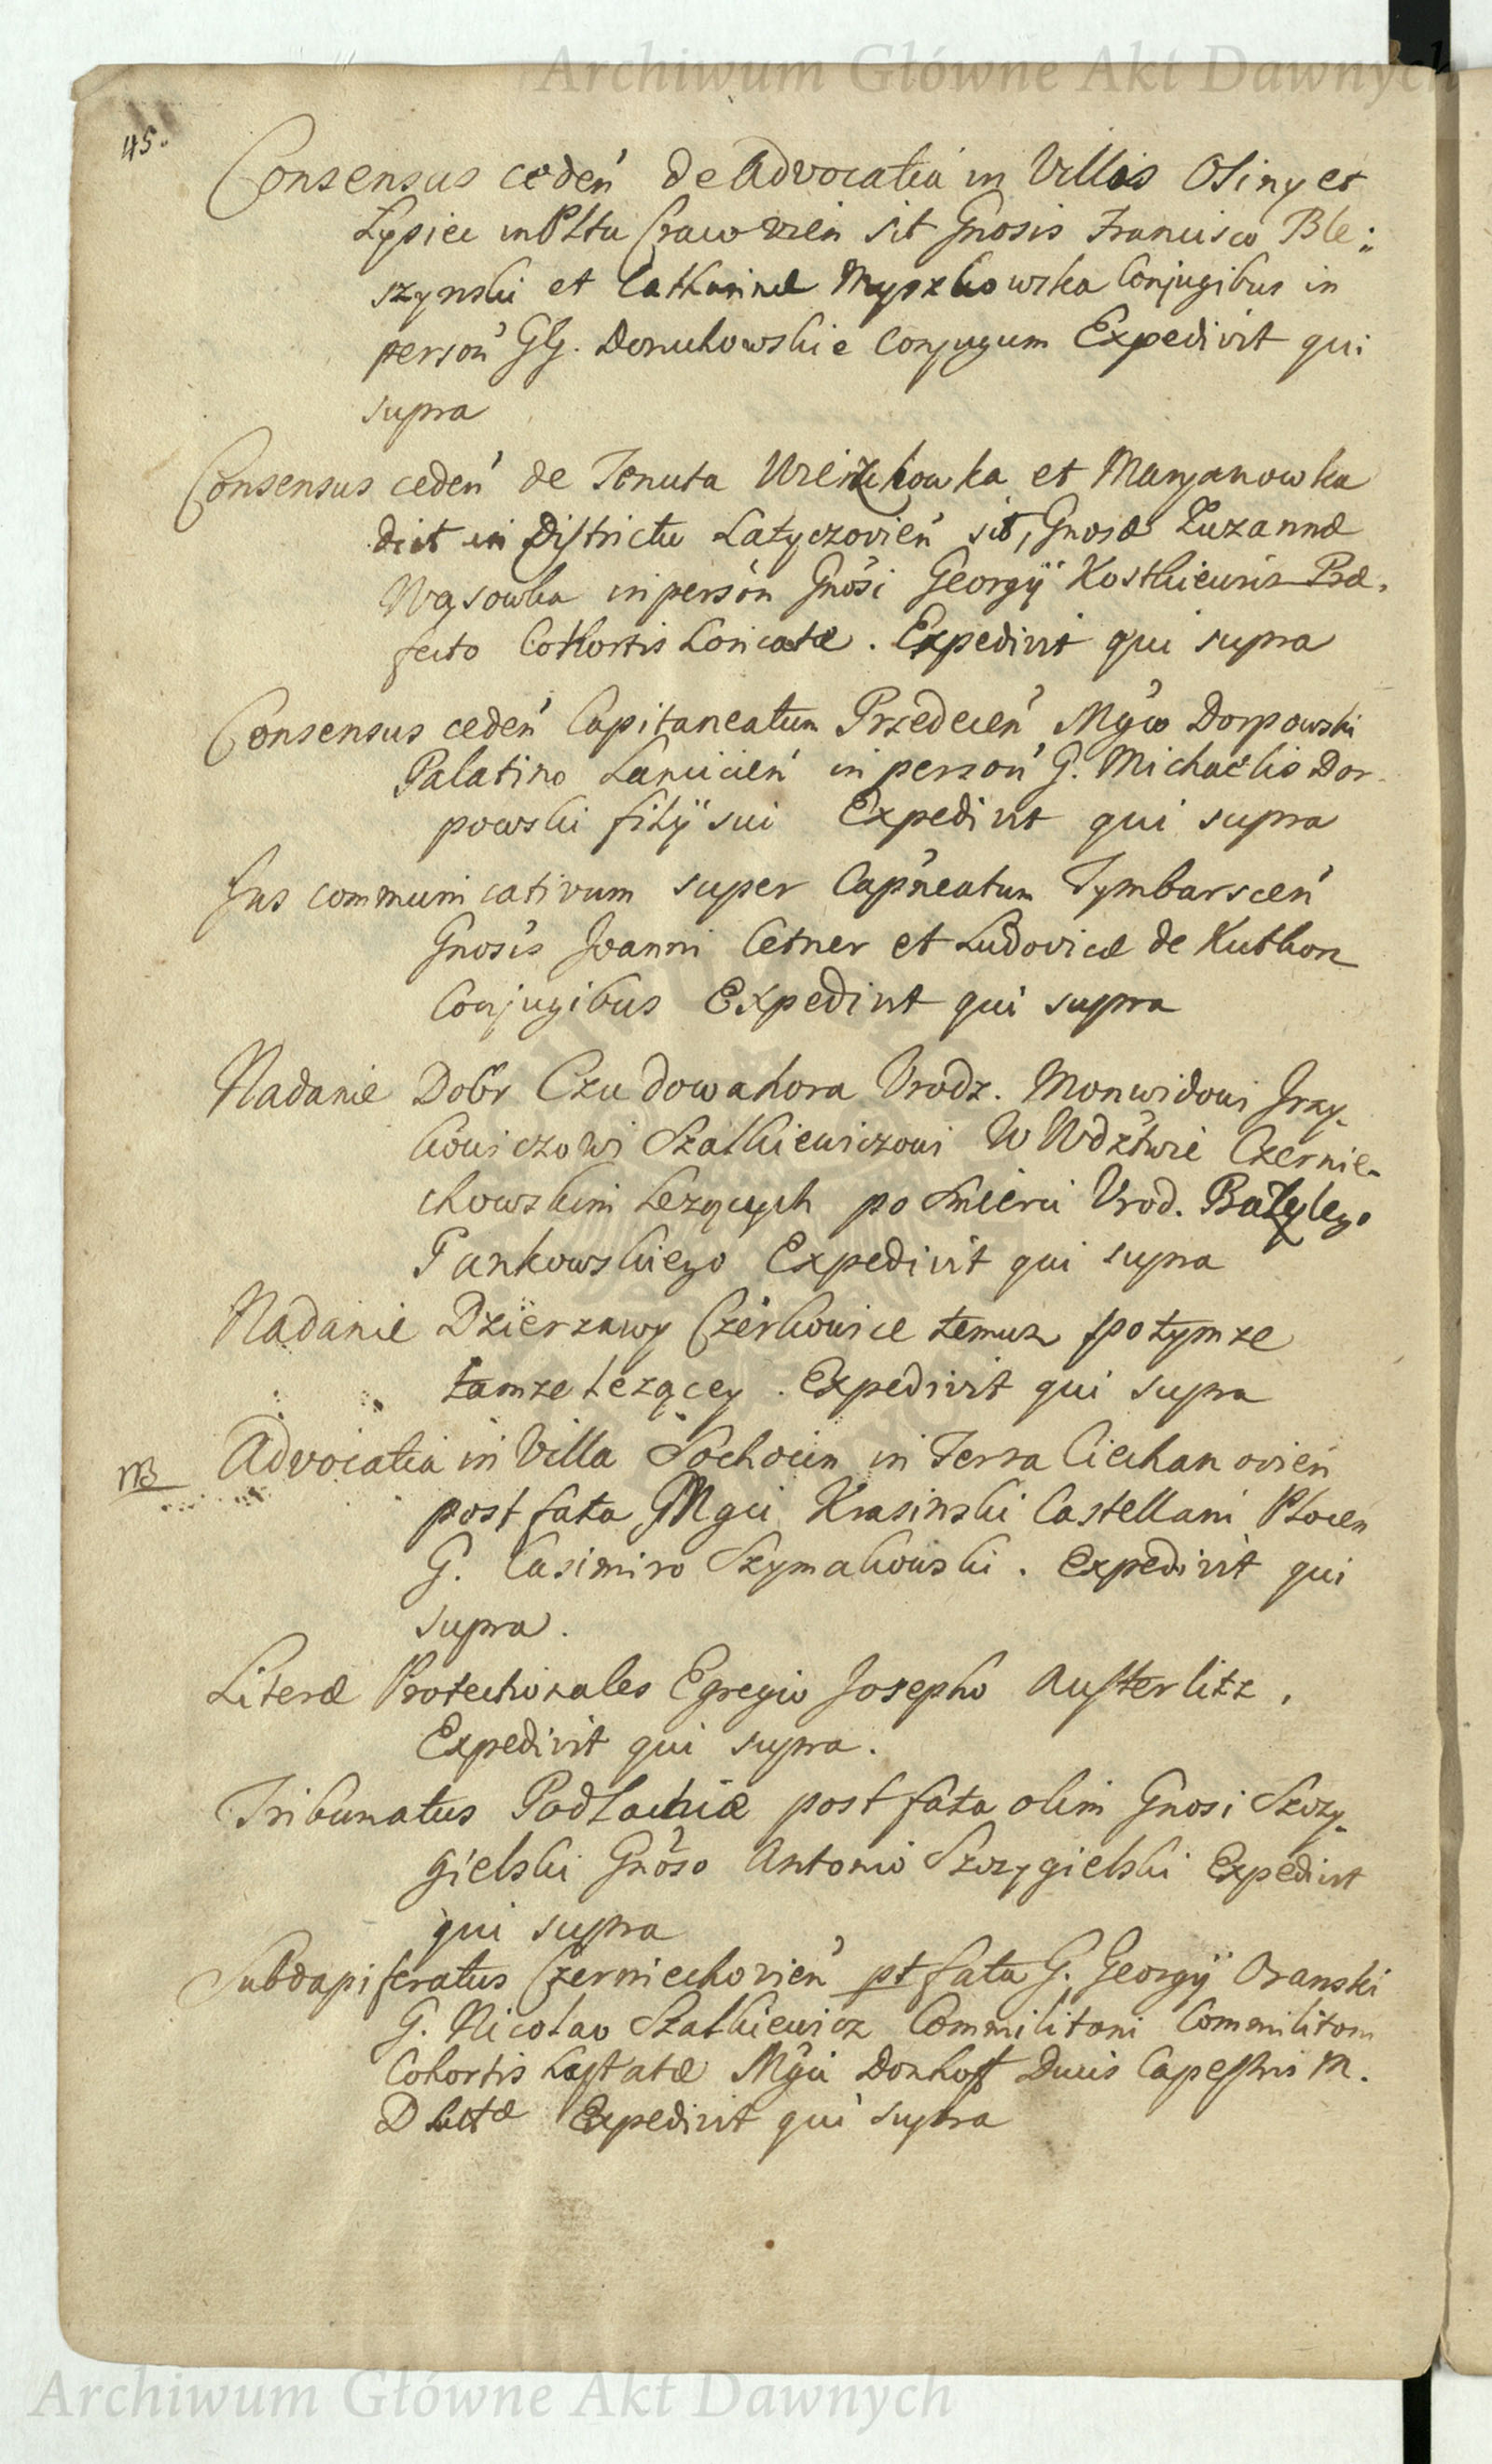 Archiwum Główne Akt Dawnych
45.
Consensus cedeń de Advocatia in Villis Osiny et
Łysiec in Plttu Cracovień sit Gnosis Francisco Ble:
szynski et Catharinæ Myszkowska Conjugibus in
persoń GG. Donuchowskie Conjugum Expedivit qui
supra
Consensus cedeń de Tenuta et Maryanowka
dict in Districtu Latyczovień sit, Gnosæ Zuzannæ
Wąsowka in persón Gnósi Georgÿ Kostkiewicz Præ.
fecto Cohortis Loricatæ. Expedivit qui supra
Consensus cedeń Capitaneatum Przedeceń Mgco Dorpowski
Palatino Lancicień in persoń G. Michaëlis Dor-
powski filÿ sui Expedivit qui supra
Jus communicativum super Capneatum Tymbarsceń
Gnosis Joanni Cetner et Ludovicæ de Kuthon
Conjugibus Expedivit qui supra
Nadanie Dobr Czudowahora Urodz. Monwidowi Jrzy-
kowiczowi Szalkiewiczowi W Wdztwie Czernie-
chowskim Lezących po Smierci Urod. Bazylego
Pankowskiego Expedivit qui supra
Nadanie Dzierzawy Czerkowice temuz po tymze
tamze Lezącey. Expedivit qui supra
NB Advocatia in Villa Sochocin in Terra Ciechanovień
post fata Mgci Krasinski Castellani Plocen
G. Casimiro Szymakowski. Expedivit qui
supra.
Literæ Protectionales Egregio Josepho Austerlitz.
Expedivit qui supra.
Tribunatus Podlachiæ post fata olim Gnosi Szczy-
gielski Gnoso Antonio Szczygielski Expedivit
qui supra
Subdapiferatus Czerniechovień pt fata G. Georgÿ Oranski
G. Nicolao Szalkiewicz Commilitoni Commilitoni
Cohortis Hastatæ Mgci Donhoff Ducis Capestris M.
D Expedivit qui supra
Archiwum Główne Akt Dawnych